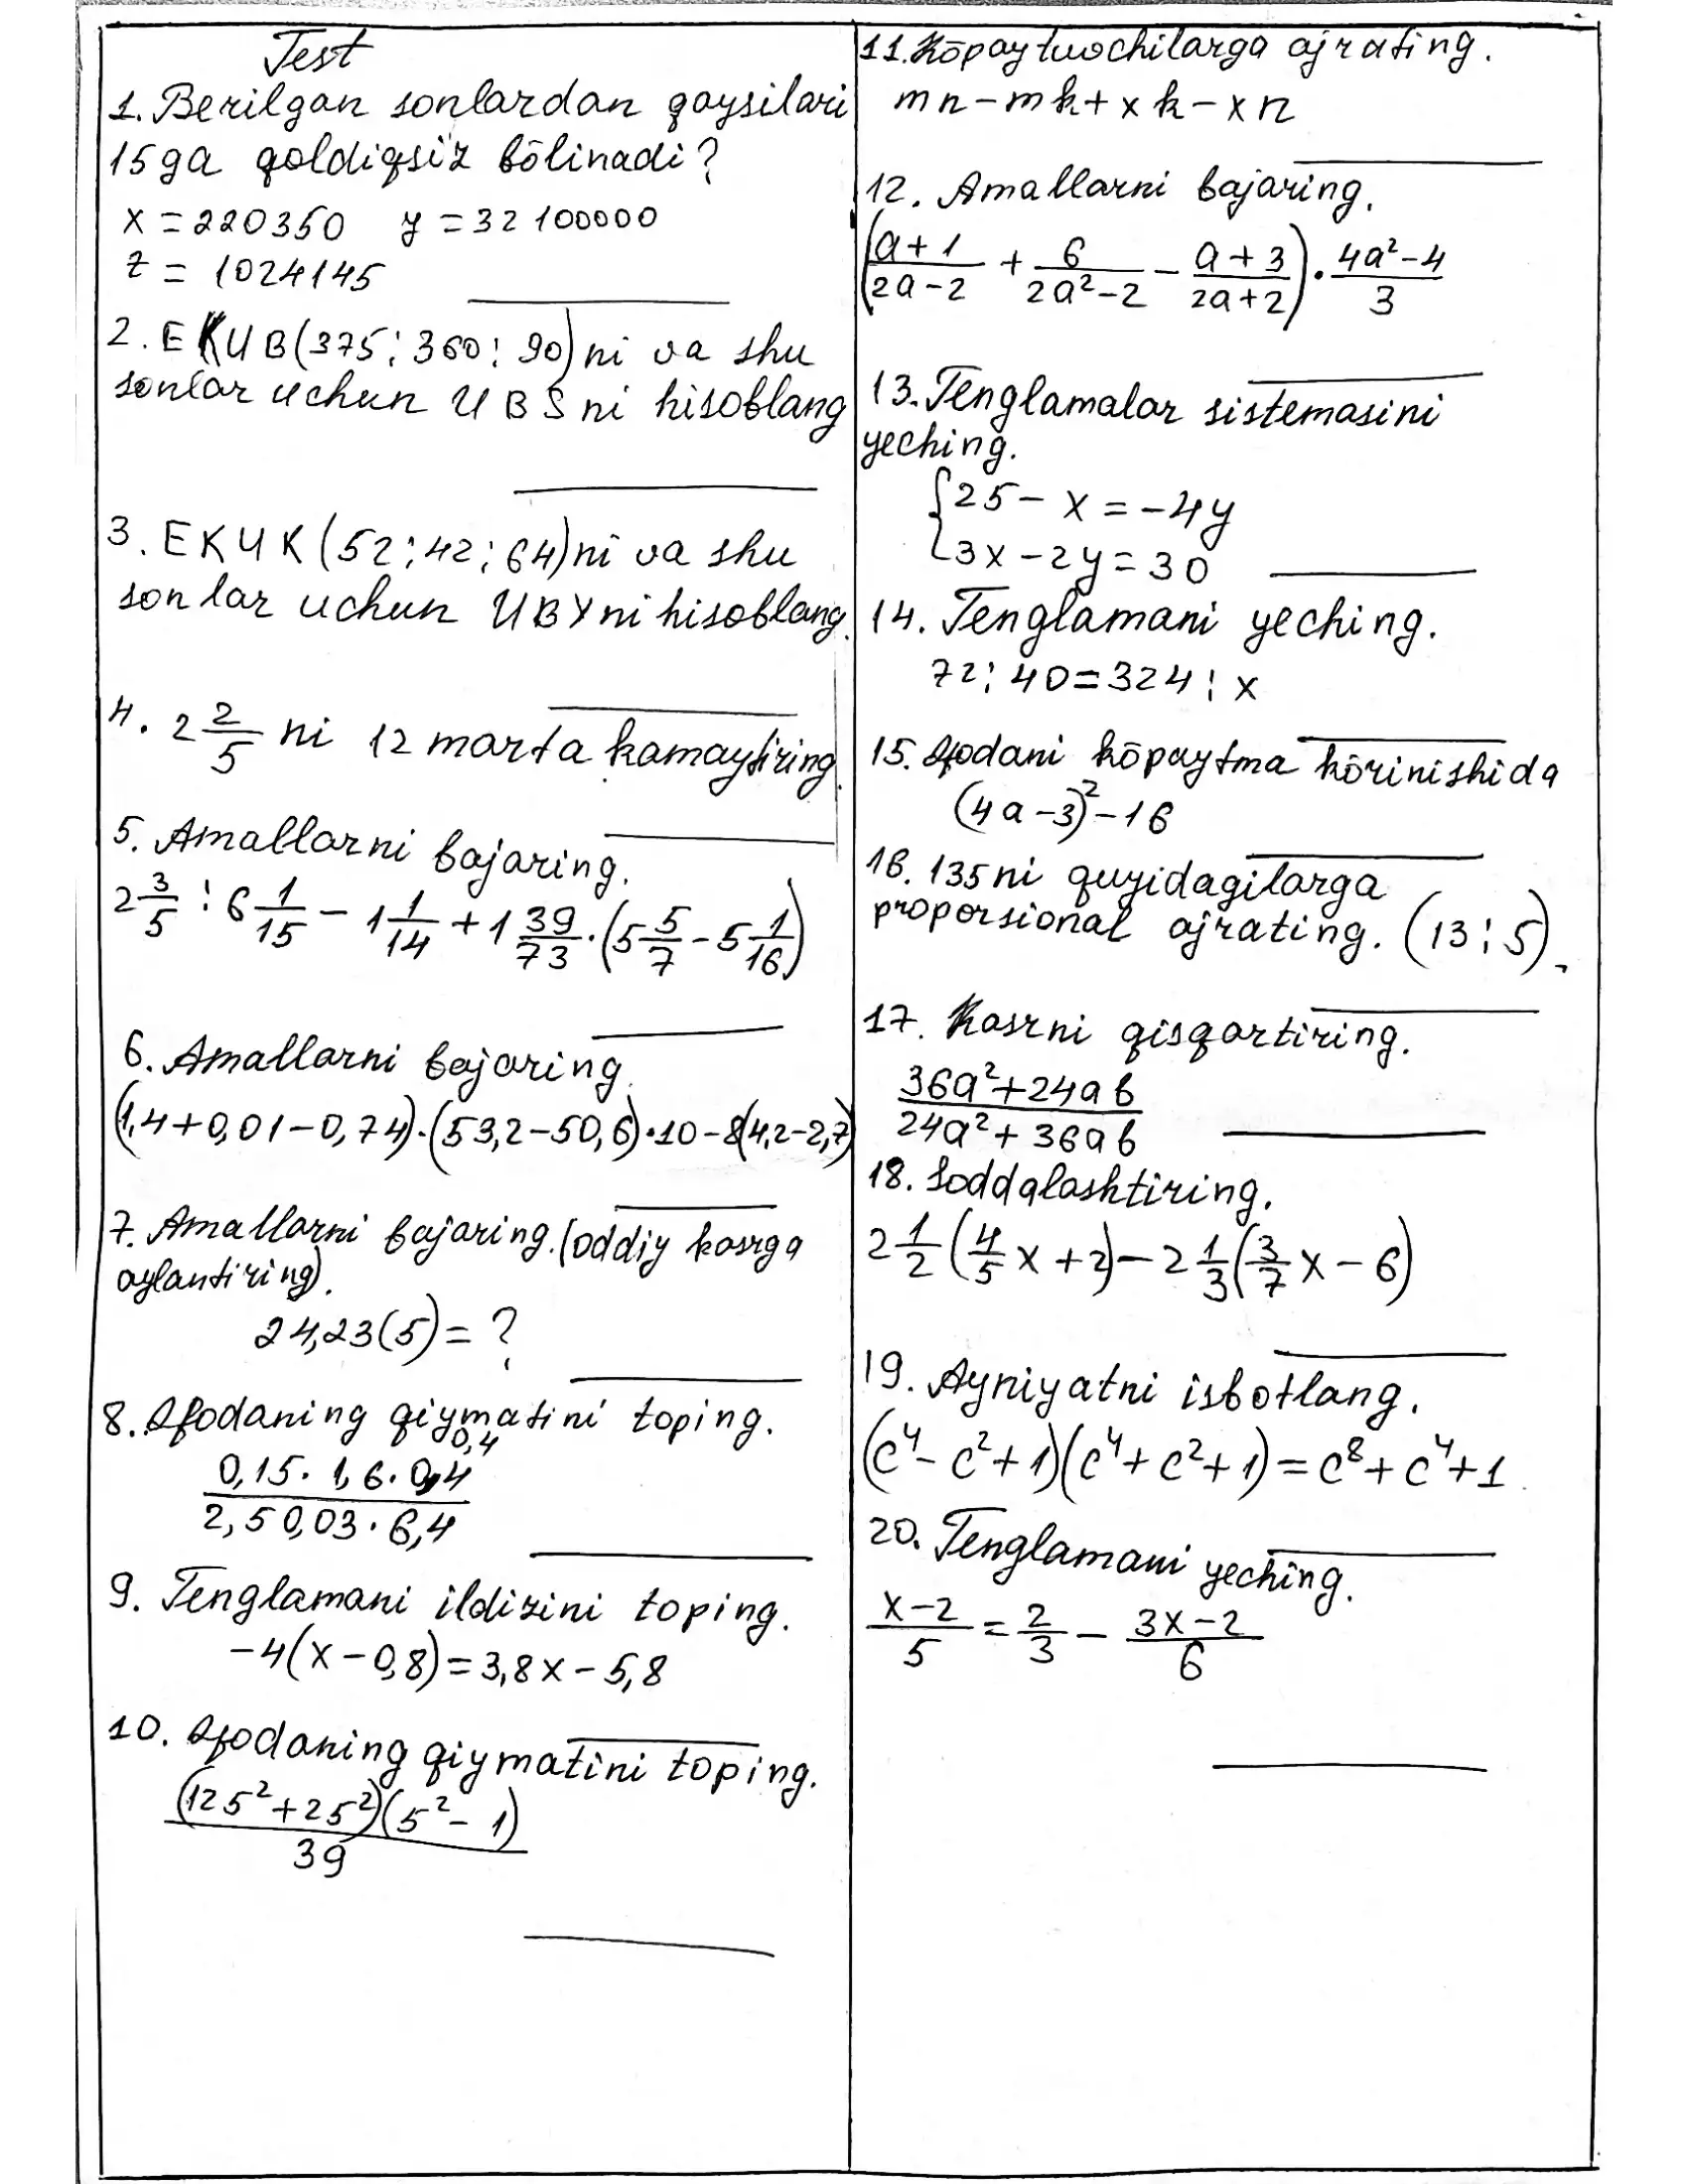 Test
1. Berilgan sonlardan qaysilari
15ga qoldiqsiz bōlinadi?
x = 220350 y = 32100000
z = 1024145
2. EKUB(375; 360; 90)ni va shu
sonlar uchun UBSni hisoblang
3. EKUK(52; 42; 64)ni va shu
sonlar uchun UBYni hisoblang.
4. 2 2/5 ni 12 marta kamaytiring.
5. Amallarni bajaring.
2 3/5 : 6 1/15 - 1 1/14 + 1 39/73 · (5 5/7 - 5 1/16)
6. Amallarni bajaring.
(1,4+0,01-0,74)·(53,2-50,6)·10-8(4,2-2,7)
7. Amallarni bajaring. (oddiy kasrga
aylantiring).
24,23(5) = ?
8. Ifodaning qiymatini toping.
0,4
0,15 · 1,6 · 0,4
2,5 0,03 · 6,4
9. Tenglamani ildizini toping.
-4(x-0,8) = 3,8x - 5,8
10. Ifodaning qiymatini toping.
(125²+25²)(5²-1)
39
11. Kōpaytuvchilarga ajrating.
mn - mk + xk - xn
12. Amallarni bajaring.
((a+1)/(2a-2) + 6/(2a²-2) - (a+3)/(2a+2)) · (4a²-4)/3
13. Tenglamalar sistemasini
yeching.
{25 - x = -4y
3x - 2y = 30
14. Tenglamani yeching.
72 : 40 = 324 : x
15. Ifodani kōpaytma kōrinishida
(4a-3)²-16
16. 135ni quyidagilarga
proporsional ajrating. (13 : 5).
17. Kasrni qisqartiring.
36a²+24ab
24a²+36ab
18. Soddalashtiring.
2 1/2 (4/5 x + 2) - 2 1/3 (3/7 x - 6)
19. Ayniyatni isbotlang.
(c⁴ - c² + 1)(c⁴ + c² + 1) = c⁸ + c⁴ + 1
20. Tenglamani yeching.
(x-2)/5 = 2/3 - (3x-2)/6